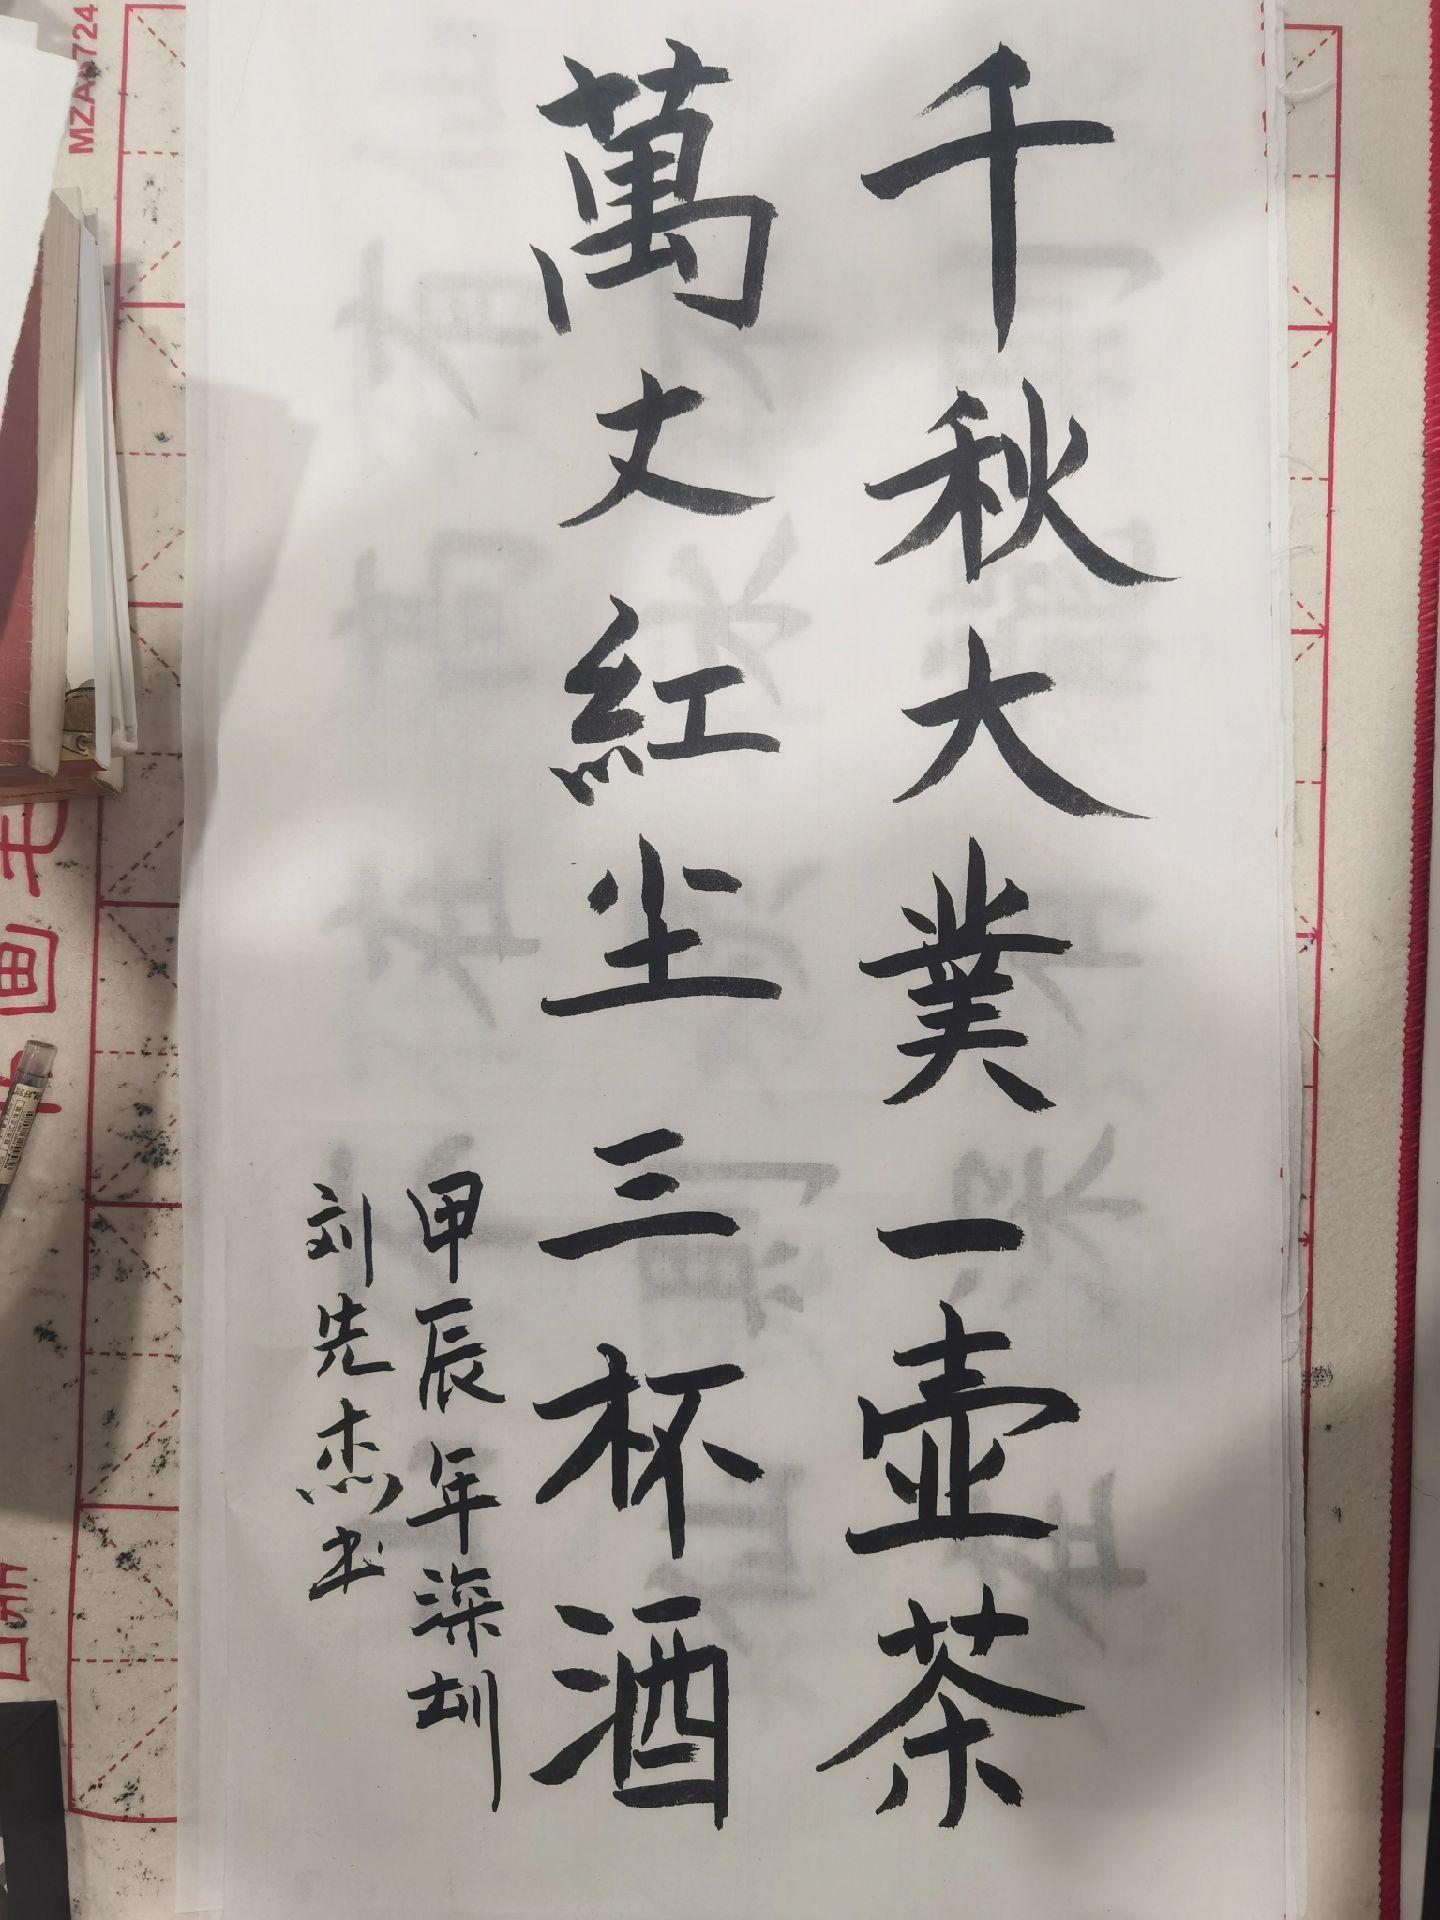 千秋大業一壶茶
萬丈紅尘三杯酒
甲辰年深圳
刘先杰书
MZA
724
画